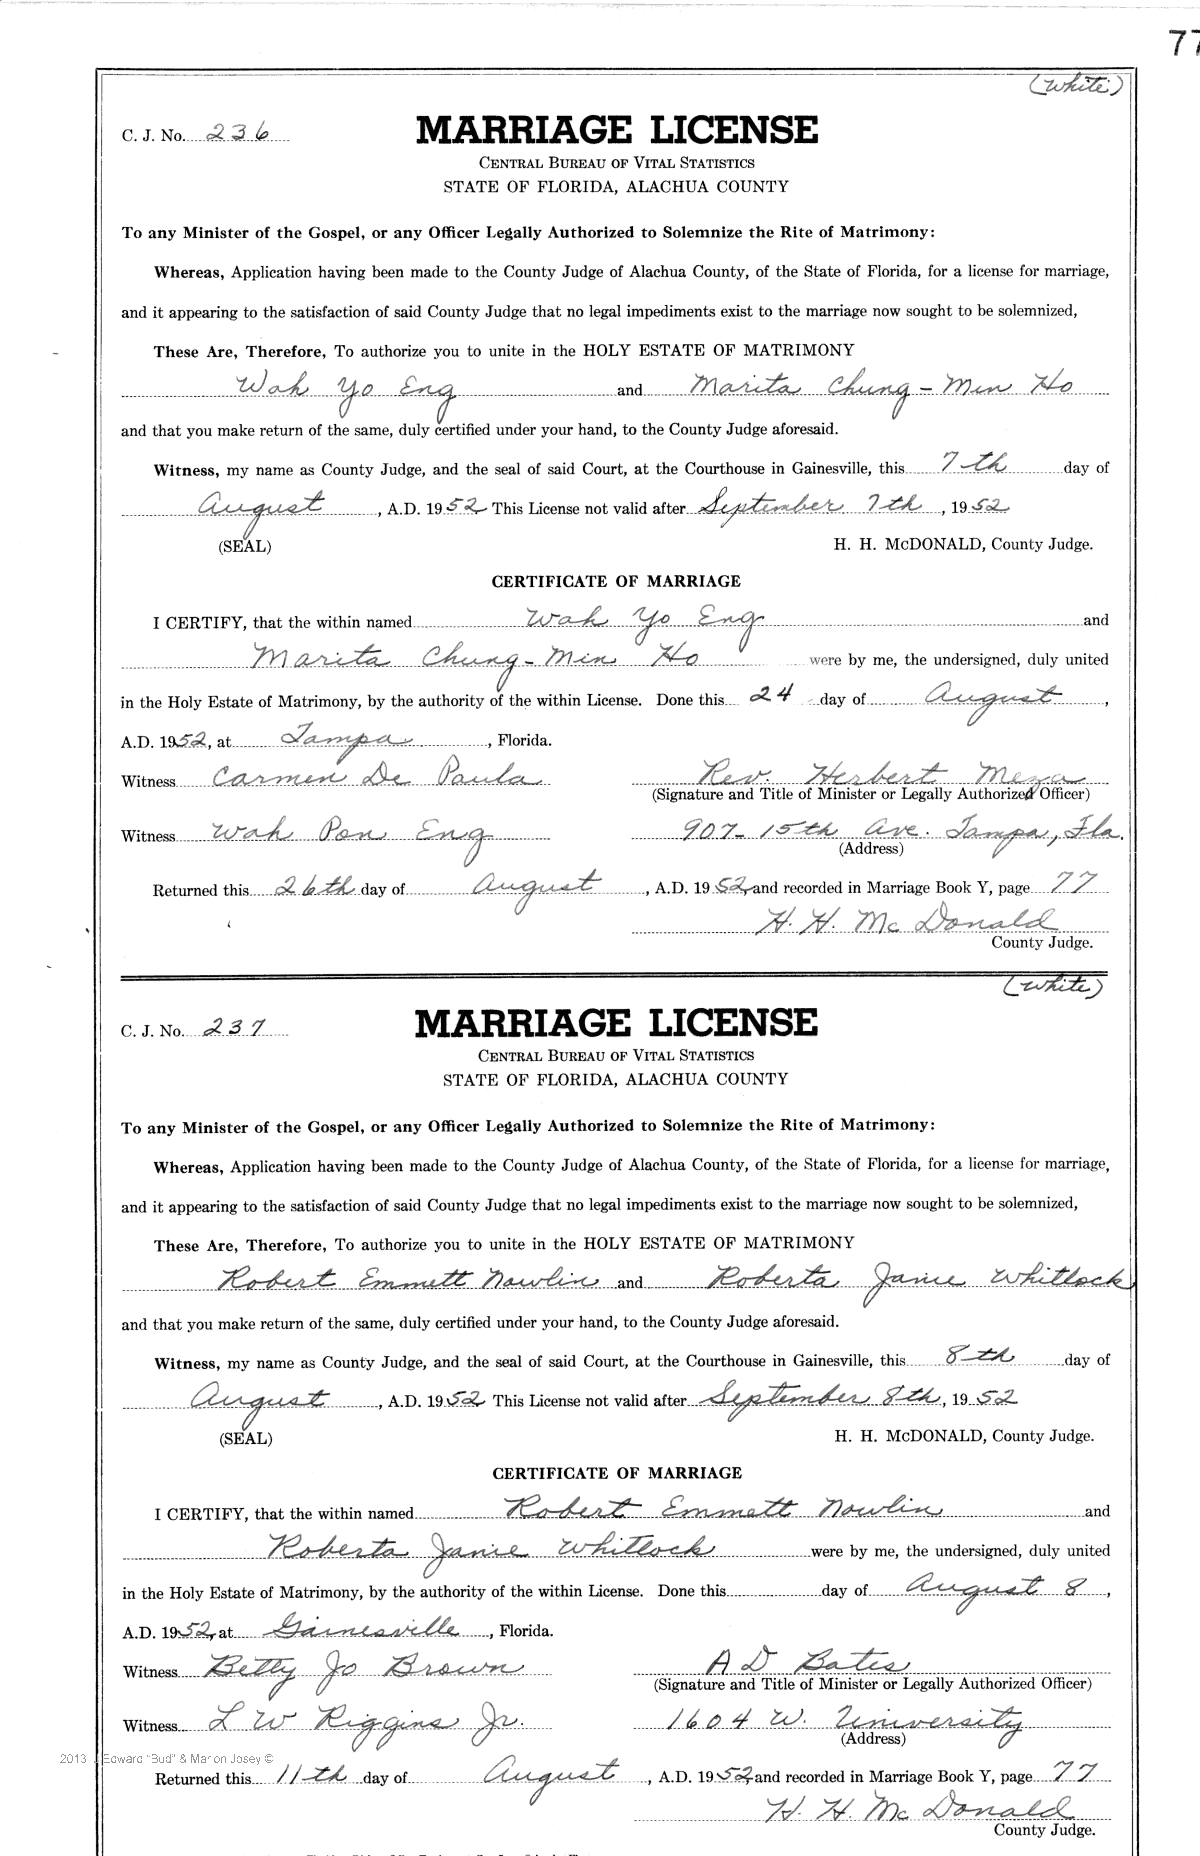 77
(White)
C. J. No. 236
MARRIAGE LICENSE
CENTRAL BUREAU OF VITAL STATISTICS
STATE OF FLORIDA, ALACHUA COUNTY
To any Minister of the Gospel, or any Officer Legally Authorized to Solemnize the Rite of Matrimony:
Whereas, Application having been made to the County Judge of Alachua County, of the State of Florida, for a license for marriage,
and it appearing to the satisfaction of said County Judge that no legal impediments exist to the marriage now sought to be solemnized,
These Are, Therefore, To authorize you to unite in the HOLY ESTATE OF MATRIMONY
Wah Yo Eng and Marita Chung-Min Ho
and that you make return of the same, duly certified under your hand, to the County Judge aforesaid.
Witness, my name as County Judge, and the seal of said Court, at the Courthouse in Gainesville, this 7th day of
August, A.D. 1952 This License not valid after September 7th, 1952
(SEAL) H. H. McDONALD, County Judge.
CERTIFICATE OF MARRIAGE
I CERTIFY, that the within named Wah Yo Eng and
Marita Chung-Min Ho were by me, the undersigned, duly united
in the Holy Estate of Matrimony, by the authority of the within License. Done this 24 day of August,
A.D. 1952, at Tampa, Florida.
Witness Carmen De Paula Rev. Herbert Meza
(Signature and Title of Minister or Legally Authorized Officer)
Witness Wah Pon Eng 907-15th Ave. Tampa, Fla.
(Address)
Returned this 26th day of August, A.D. 1952, and recorded in Marriage Book Y, page 77
H. H. McDonald
County Judge.
(White)
C. J. No. 237
MARRIAGE LICENSE
CENTRAL BUREAU OF VITAL STATISTICS
STATE OF FLORIDA, ALACHUA COUNTY
To any Minister of the Gospel, or any Officer Legally Authorized to Solemnize the Rite of Matrimony:
Whereas, Application having been made to the County Judge of Alachua County, of the State of Florida, for a license for marriage,
and it appearing to the satisfaction of said County Judge that no legal impediments exist to the marriage now sought to be solemnized,
These Are, Therefore, To authorize you to unite in the HOLY ESTATE OF MATRIMONY
Robert Emmett Nowlin and Roberta Janie Whitlock
and that you make return of the same, duly certified under your hand, to the County Judge aforesaid.
Witness, my name as County Judge, and the seal of said Court, at the Courthouse in Gainesville, this 8th day of
August, A.D. 1952 This License not valid after September 8th, 1952
(SEAL) H. H. McDONALD, County Judge.
CERTIFICATE OF MARRIAGE
I CERTIFY, that the within named Robert Emmett Nowlin and
Roberta Janie Whitlock were by me, the undersigned, duly united
in the Holy Estate of Matrimony, by the authority of the within License. Done this day of August 8,
A.D. 1952, at Gainesville, Florida.
Witness Betty Jo Brown A D Bates
(Signature and Title of Minister or Legally Authorized Officer)
Witness L W Riggins Jr. 1604 W. University
(Address)
2013 J Edward "Bud" & Marion Josey ©
Returned this 11th day of August, A.D. 1952, and recorded in Marriage Book Y, page 77
H. H. McDonald
County Judge.